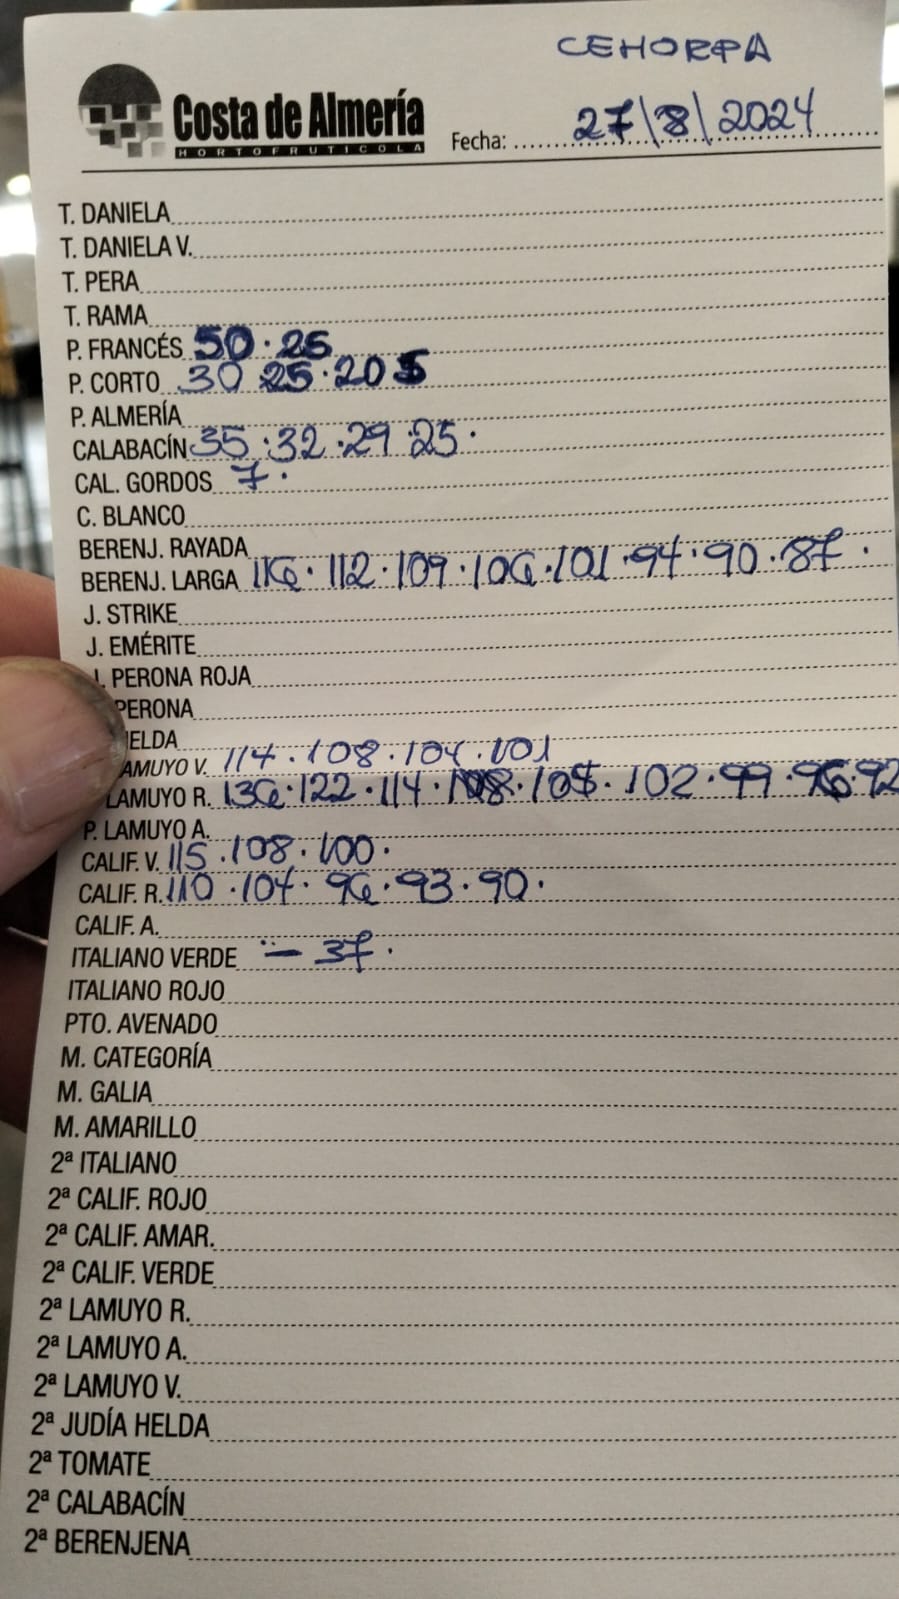 CEHORPA
Costa de Almería
HORTOFRUTICOLA
Fecha: 27/8/2024
T. DANIELA
T. DANIELA V.
T. PERA
T. RAMA
P. FRANCÉS 50.26
P. CORTO 30 25.20 5
P. ALMERÍA
CALABACÍN 35.32.29.25.
CAL. GORDOS 7.
C. BLANCO
BERENJ. RAYADA
BERENJ. LARGA 116.112.109.106.101.94.90.87.
J. STRIKE
J. EMÉRITE
J. PERONA ROJA
PERONA
ELDA
LAMUYO V. 114.108.104.101
LAMUYO R. 136.122.114.108.105.102.99.96.92
P. LAMUYO A.
CALIF. V. 115.108.100.
CALIF. R. 110.104.96.93.90.
CALIF. A.
ITALIANO VERDE — 37.
ITALIANO ROJO
PTO. AVENADO
M. CATEGORÍA
M. GALIA
M. AMARILLO
2ª ITALIANO
2ª CALIF. ROJO
2ª CALIF. AMAR.
2ª CALIF. VERDE
2ª LAMUYO R.
2ª LAMUYO A.
2ª LAMUYO V.
2ª JUDÍA HELDA
2ª TOMATE
2ª CALABACÍN
2ª BERENJENA